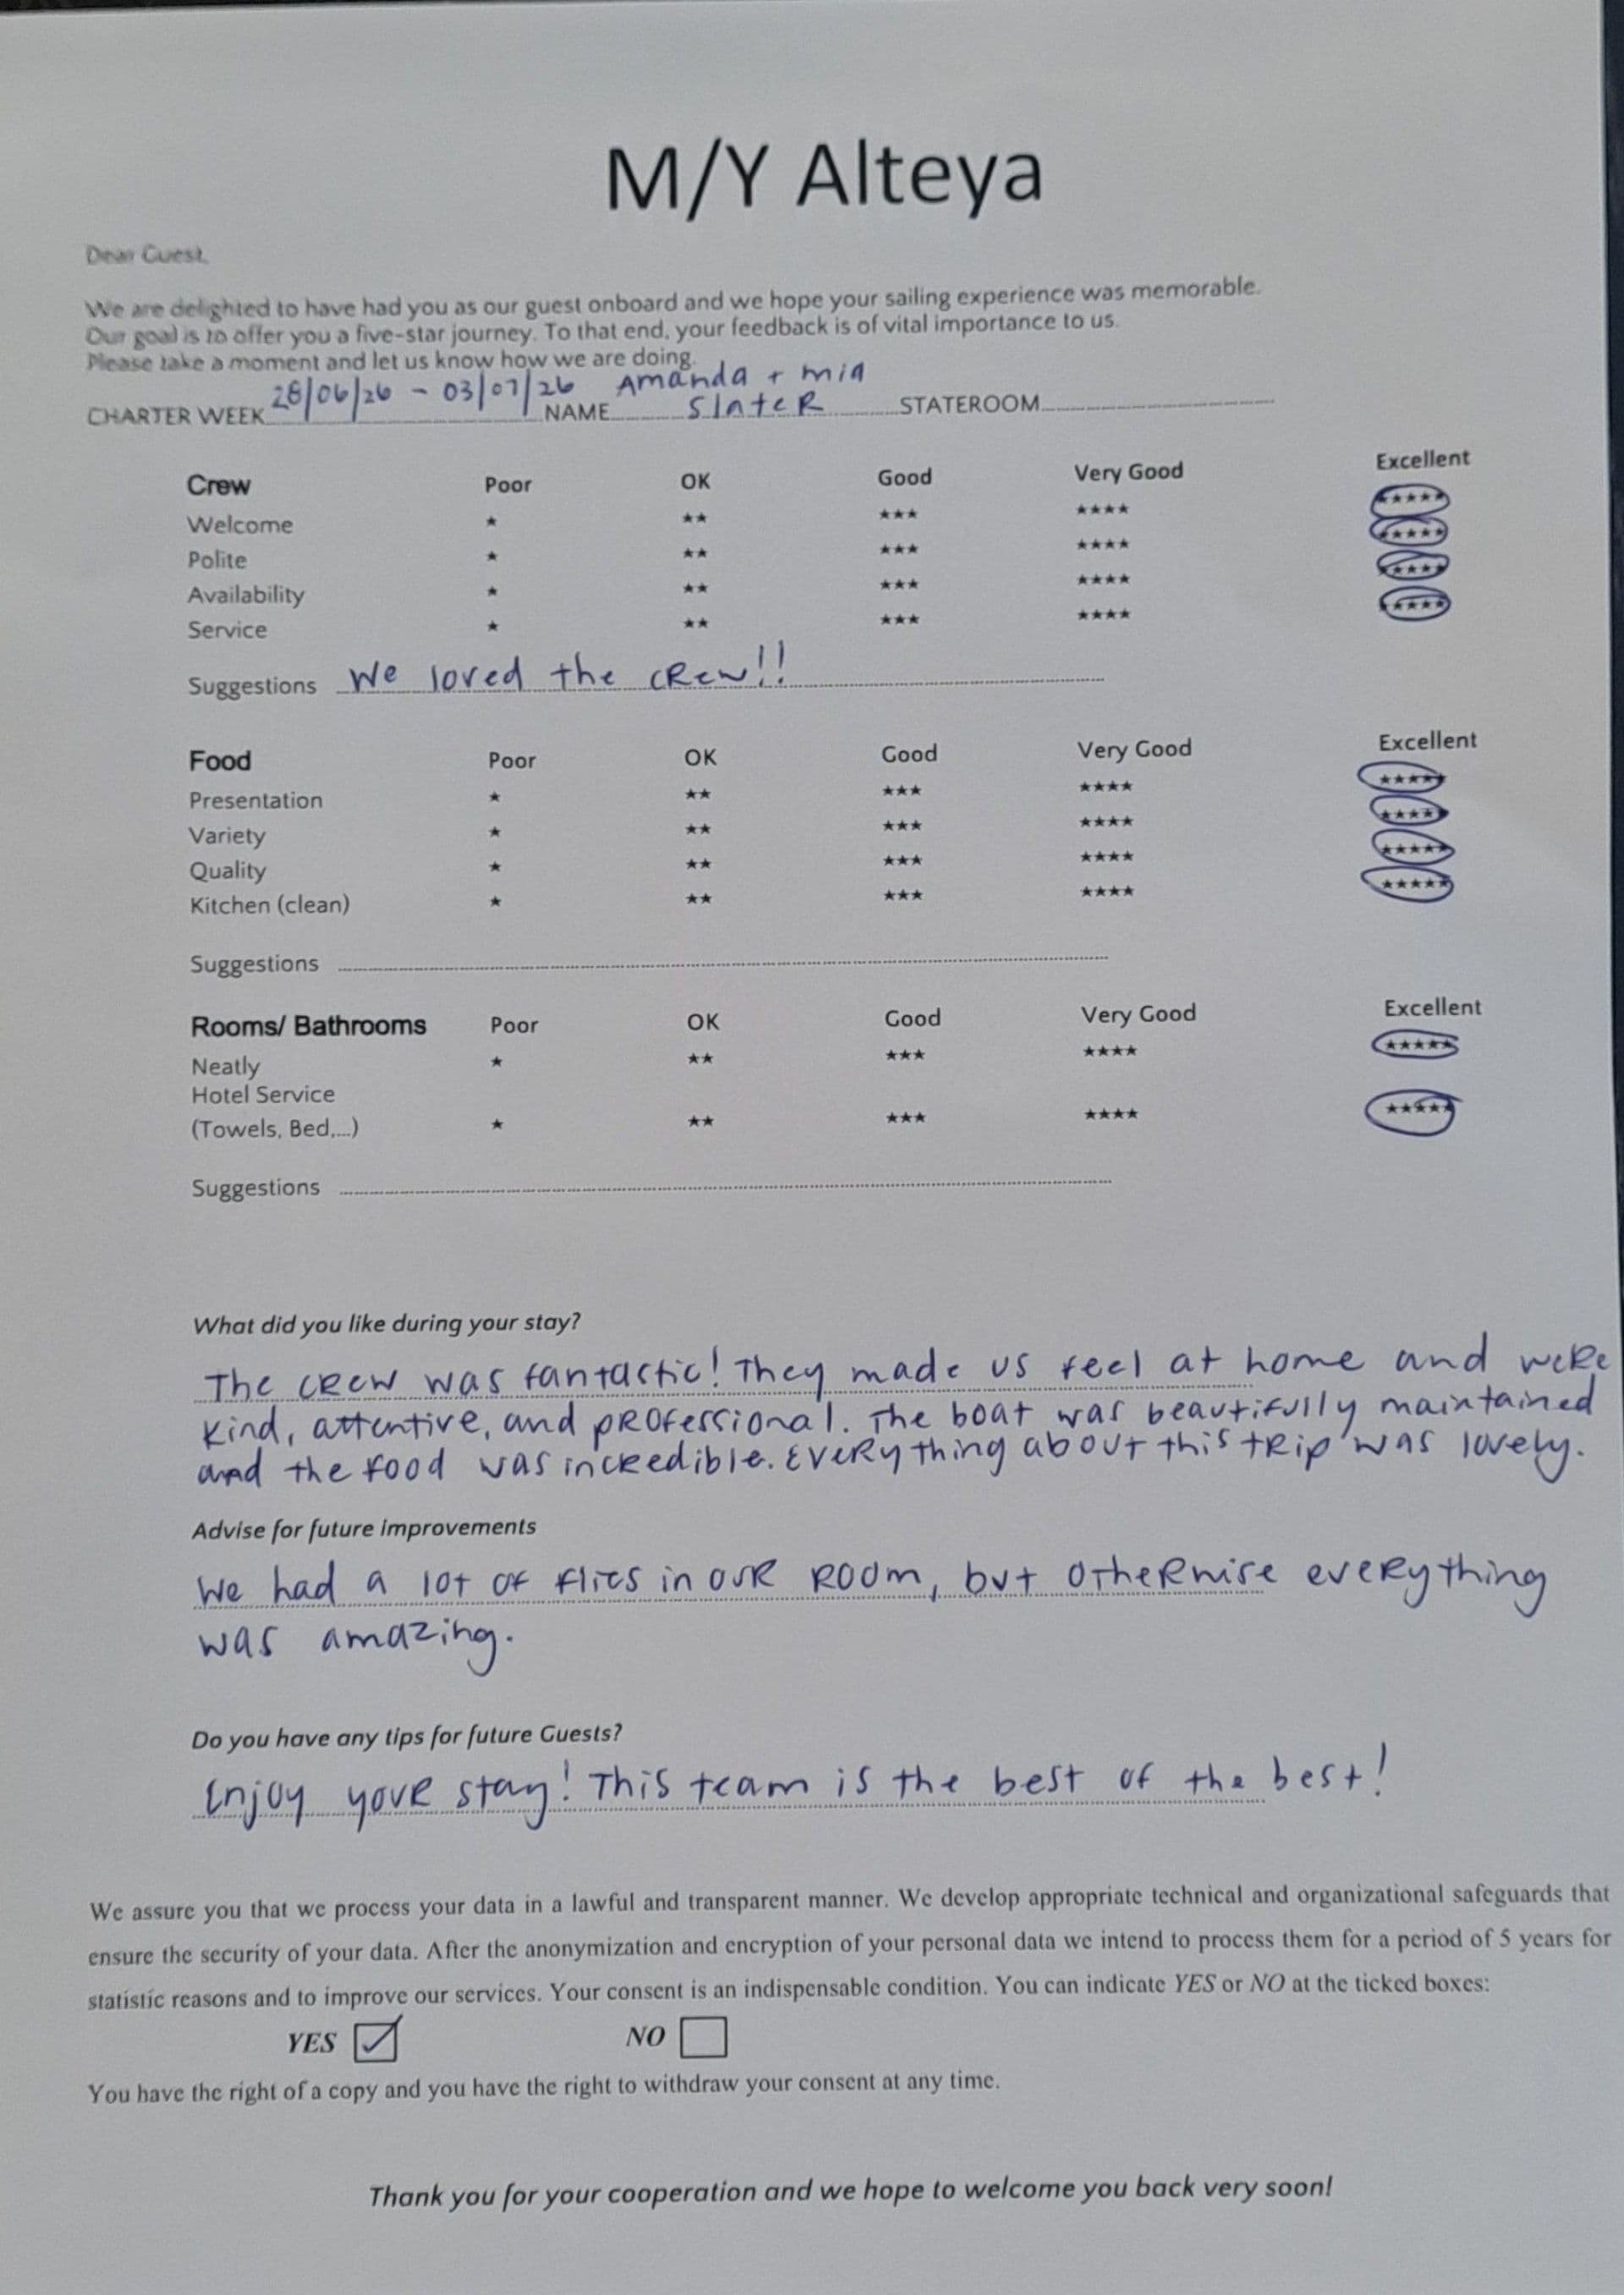 M/Y Alteya
Dear Guest,
We are delighted to have had you as our guest onboard and we hope your sailing experience was memorable.
Our goal is to offer you a five-star journey. To that end, your feedback is of vital importance to us.
Please take a moment and let us know how we are doing.
CHARTER WEEK 28/06/26 - 03/07/26 NAME Amanda + mia
Slater STATEROOM
Crew Poor OK Good Very Good Excellent
Welcome ★ ★★ ★★★ ★★★★ ★★★★★
Polite ★ ★★ ★★★ ★★★★ ★★★★★
Availability ★ ★★ ★★★ ★★★★ ★★★★★
Service ★ ★★ ★★★ ★★★★ ★★★★★
Suggestions We loved the crew!!
Food Poor OK Good Very Good Excellent
Presentation ★ ★★ ★★★ ★★★★ ★★★★★
Variety ★ ★★ ★★★ ★★★★ ★★★★★
Quality ★ ★★ ★★★ ★★★★ ★★★★★
Kitchen (clean) ★ ★★ ★★★ ★★★★ ★★★★★
Suggestions
Rooms/ Bathrooms Poor OK Good Very Good Excellent
Neatly ★ ★★ ★★★ ★★★★ ★★★★★
Hotel Service
(Towels, Bed,...) ★ ★★ ★★★ ★★★★ ★★★★★
Suggestions
What did you like during your stay?
The crew was fantastic! They made us feel at home and were
kind, attentive, and professional. The boat was beautifully maintained
and the food was incredible. Everything about this trip was lovely.
Advise for future improvements
We had a lot of flies in our room, but otherwise everything
was amazing.
Do you have any tips for future Guests?
Enjoy your stay! This team is the best of the best!
We assure you that we process your data in a lawful and transparent manner. We develop appropriate technical and organizational safeguards that
ensure the security of your data. After the anonymization and encryption of your personal data we intend to process them for a period of 5 years for
statistic reasons and to improve our services. Your consent is an indispensable condition. You can indicate YES or NO at the ticked boxes:
YES ☑ NO ☐
You have the right of a copy and you have the right to withdraw your consent at any time.
Thank you for your cooperation and we hope to welcome you back very soon!